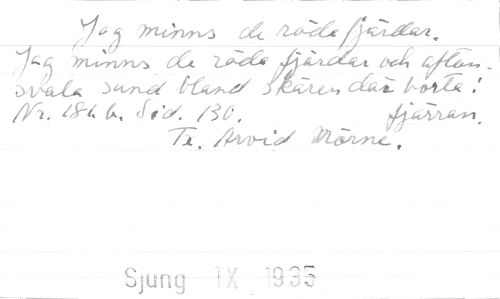 Jag minns de röda fjärdar.
Jag minns de röda fjärdar och afton-
svala sund bland skären där borta i
Nr. 186 b. Sid. 130. fjärran.
Te. Arvid Mörne.
Sjung IX 1935